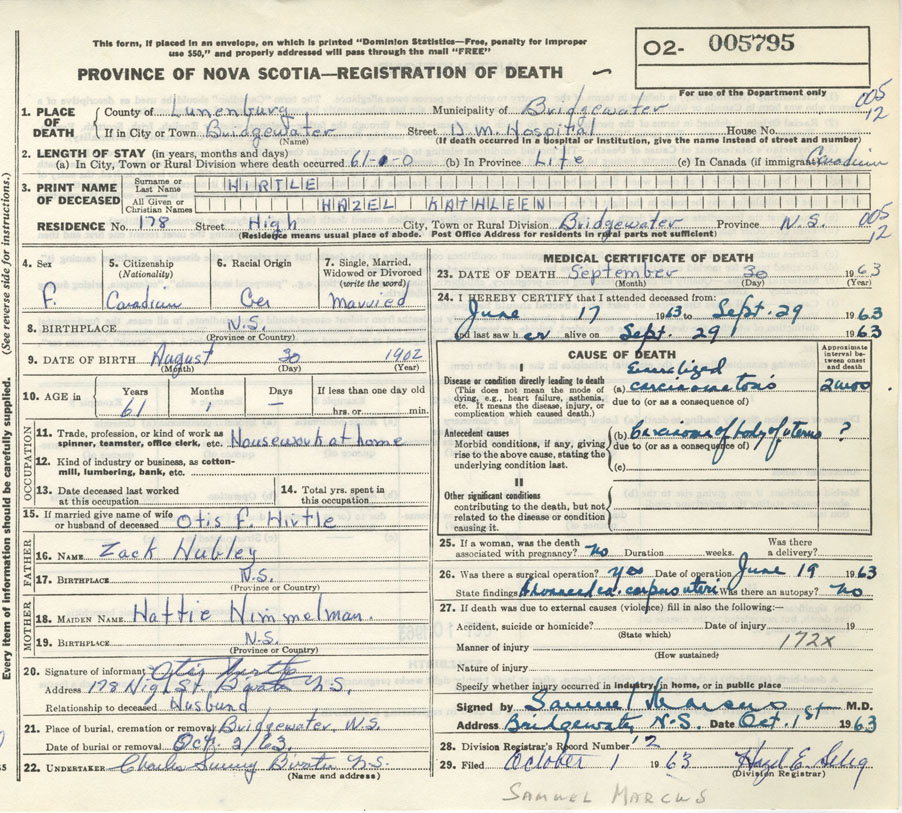 This form, if placed in an envelope, on which is printed "Dominion Statistics—Free, penalty for improper
use $50," and properly addressed will pass through the mail "FREE"
PROVINCE OF NOVA SCOTIA—REGISTRATION OF DEATH
O2- 005795
For use of the Department only
005
12
1. PLACE OF DEATH
County of Lunenburg Municipality of Bridgewater
If in City or Town Bridgewater Street D.M. Hospital House No.
(Name) (If death occurred in a hospital or institution, give the name instead of street and number)
2. LENGTH OF STAY (in years, months and days)
(a) In City, Town or Rural Division where death occurred 61-0-0 (b) In Province Life (c) In Canada (if immigrant) Canadian
3. PRINT NAME OF DECEASED
Surname or Last Name HIRTLE
All Given or Christian Names HAZEL KATHLEEN
RESIDENCE No. 178 Street High City, Town or Rural Division Bridgewater Province N.S.
005
12
(Residence means usual place of abode. Post Office Address for residents in rural parts not sufficient)
4. Sex F.
5. Citizenship (Nationality) Canadian
6. Racial Origin Ger
7. Single, Married, Widowed or Divorced (write the word) Married
8. BIRTHPLACE N.S.
(Province or Country)
9. DATE OF BIRTH August 30 1902
(Month) (Day) (Year)
10. AGE in Years 61 Months 1 Days — If less than one day old hrs. or min.
OCCUPATION
11. Trade, profession, or kind of work as spinner, teamster, office clerk, etc. Housework at home
12. Kind of industry or business, as cotton-mill, lumbering, bank, etc.
13. Date deceased last worked at this occupation
14. Total yrs. spent in this occupation
15. If married give name of wife or husband of deceased Otis F. Hirtle
FATHER
16. NAME Zack Hubley
17. BIRTHPLACE N.S.
(Province or Country)
MOTHER
18. MAIDEN NAME Hattie Himmelman.
19. BIRTHPLACE N.S.
(Province or Country)
20. Signature of informant Otis Hirtle
Address 178 High St. Bwater N.S.
Relationship to deceased Husband
21. Place of burial, cremation or removal Bridgewater, N.S.
Date of burial or removal Oct. 2/63.
22. UNDERTAKER Charles Bwater N.S.
(Name and address)
MEDICAL CERTIFICATE OF DEATH
23. DATE OF DEATH September 30 1963
(Month) (Day) (Year)
24. I HEREBY CERTIFY that I attended deceased from:
June 17 1963 to Sept. 29 1963
and last saw her alive on Sept. 29 1963
CAUSE OF DEATH
Approximate interval between onset and death
I
Disease or condition directly leading to death
(This does not mean the mode of dying, e.g., heart failure, asthenia, etc. It means the disease, injury, or complication which caused death.)
Generalized
(a) carcinomatosis
due to (or as a consequence of)
Antecedent causes
Morbid conditions, if any, giving rise to the above cause, stating the underlying condition last.
(b) Carcinoma of body of uterus ?
due to (or as a consequence of)
(c)
II
Other significant conditions
contributing to the death, but not related to the disease or condition causing it.
25. If a woman, was the death associated with pregnancy? no Duration weeks. Was there a delivery?
26. Was there a surgical operation? yes Date of operation June 19 1963
State findings Advanced ca. corpus uteri Was there an autopsy? no
27. If death was due to external causes (violence) fill in also the following:—
Accident, suicide or homicide? Date of injury 19
(State which)
Manner of injury 172X
(How sustained)
Nature of injury
Specify whether injury occurred in industry, in home, or in public place
Signed by Samuel Marcus M.D.
Address Bridgewater, N.S. Date Oct. 1st 1963
28. Division Registrar's Record Number 12
29. Filed October 1 1963 Hazel E. Selig
(Division Registrar)
SAMUEL MARCUS
(See reverse side for instructions.)
Every item of information should be carefully supplied.